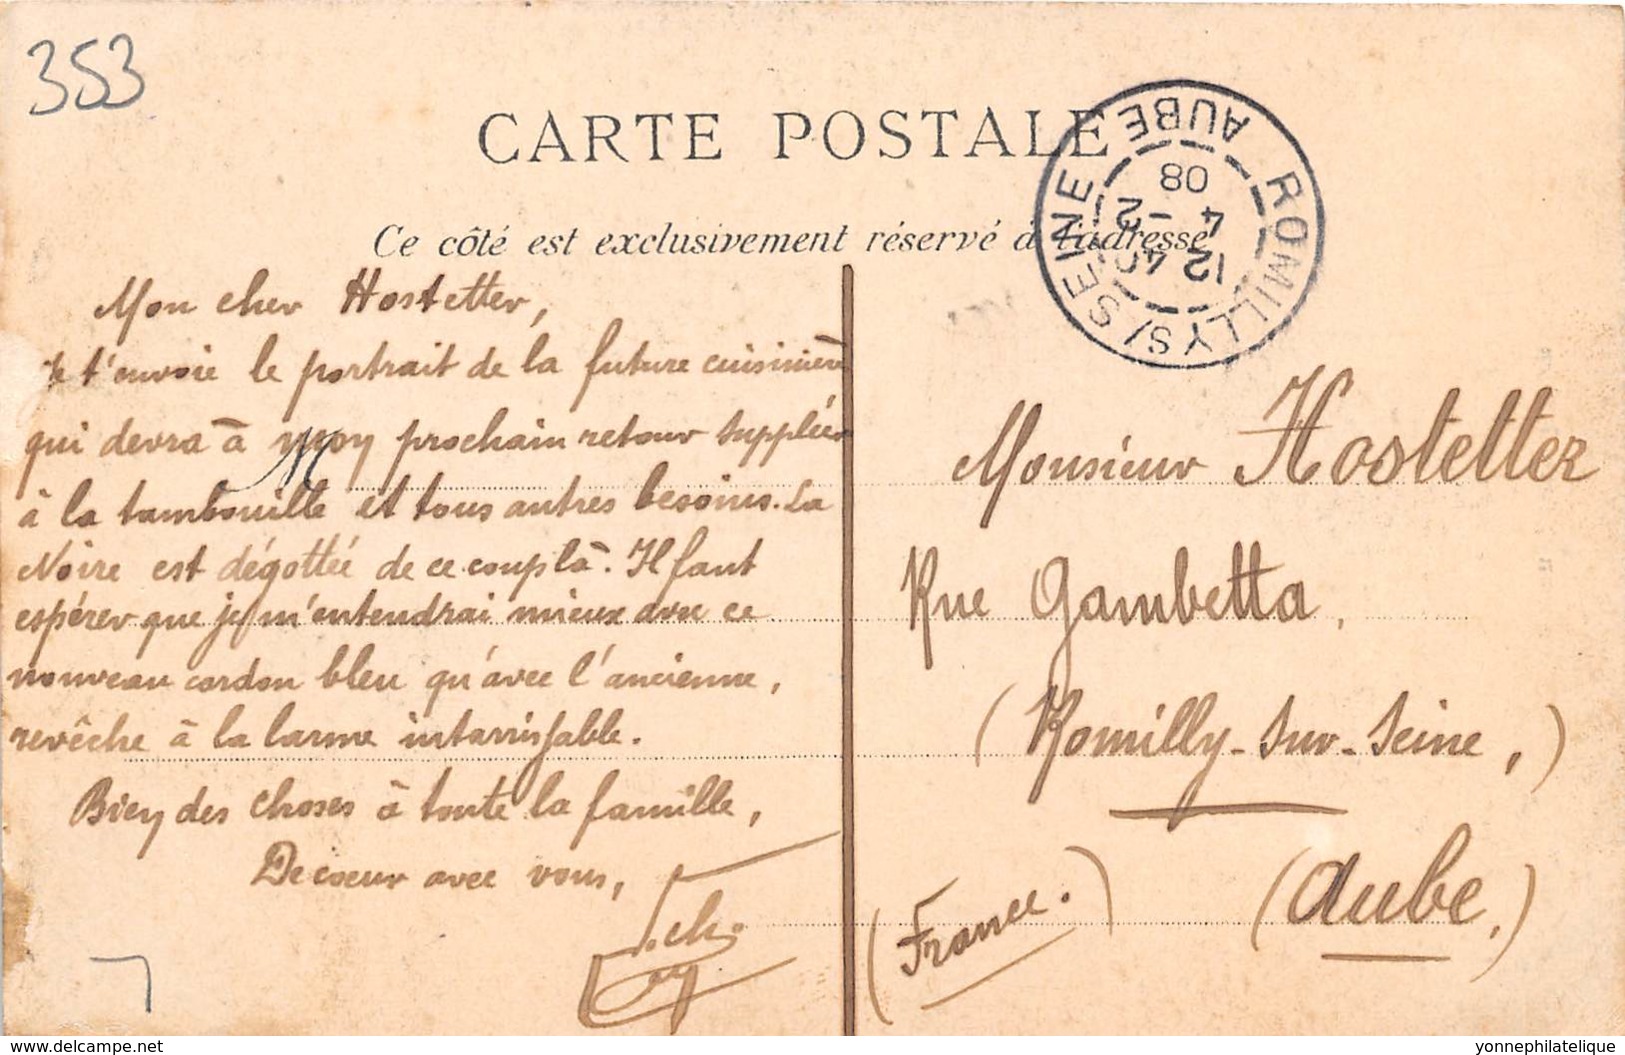 353
CARTE POSTALE
Ce côté est exclusivement réservé à l'adresse
ROMILLY S/SEINE AUBE
12 40
4 -2
08
Mon cher Hostetter,
Je t'envoie le portrait de la future cuisinière
qui devra à mon prochain retour suppléer
à la tambouille et tous autres besoins. La
Noire est dégottée de ce coup là. Il faut
espérer que je m'entendrai mieux avec ce
nouveau cordon bleu qu'avec l'ancienne,
revêche à la larme intarissable.
Bien des choses à toute la famille,
De coeur avec vous,
Monsieur Hostetter
Rue Gambetta,
(Romilly-sur-Seine,)
(Aube,)
(France.)
Delcampe.net
yonnephilatelique